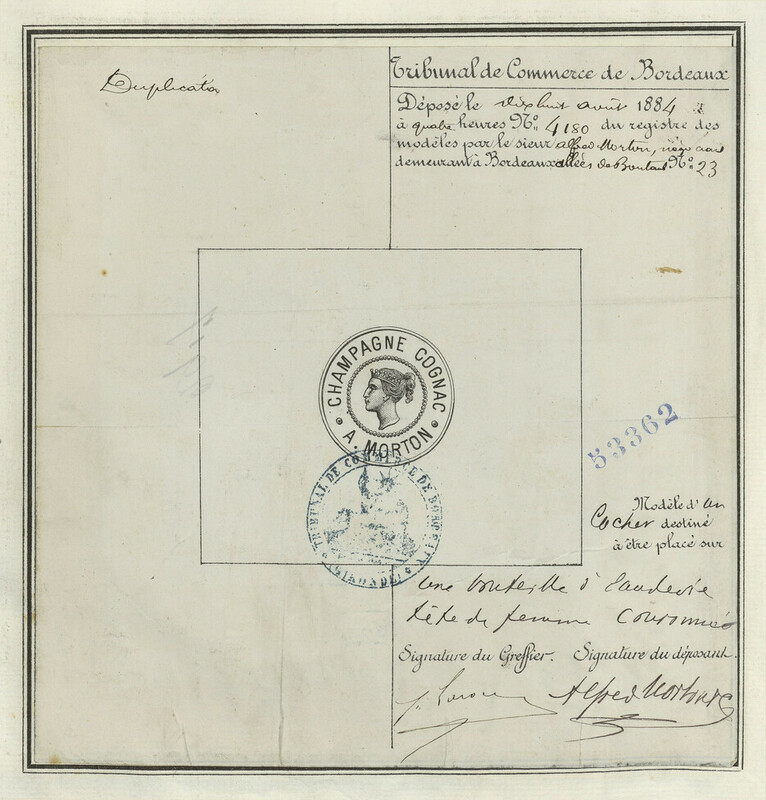 Duplicata
Tribunal de Commerce de Bordeaux
Déposé le dix huit août 1884
à quatre heures No. 4180 du registre des
modèles par le sieur Alfred Morton,
demeurant à Bordeaux allées de No. 23
CHAMPAGNE COGNAC
A. MORTON
TRIBUNAL DE COMMERCE DE BORDEAUX
(GIRONDE)
53362
Modèle d'un
Cachet destiné
à être placé sur
une bouteille d'eau de vie
tête de femme couronnée
Signature du Greffier. Signature du déposant.
Alfred Morton